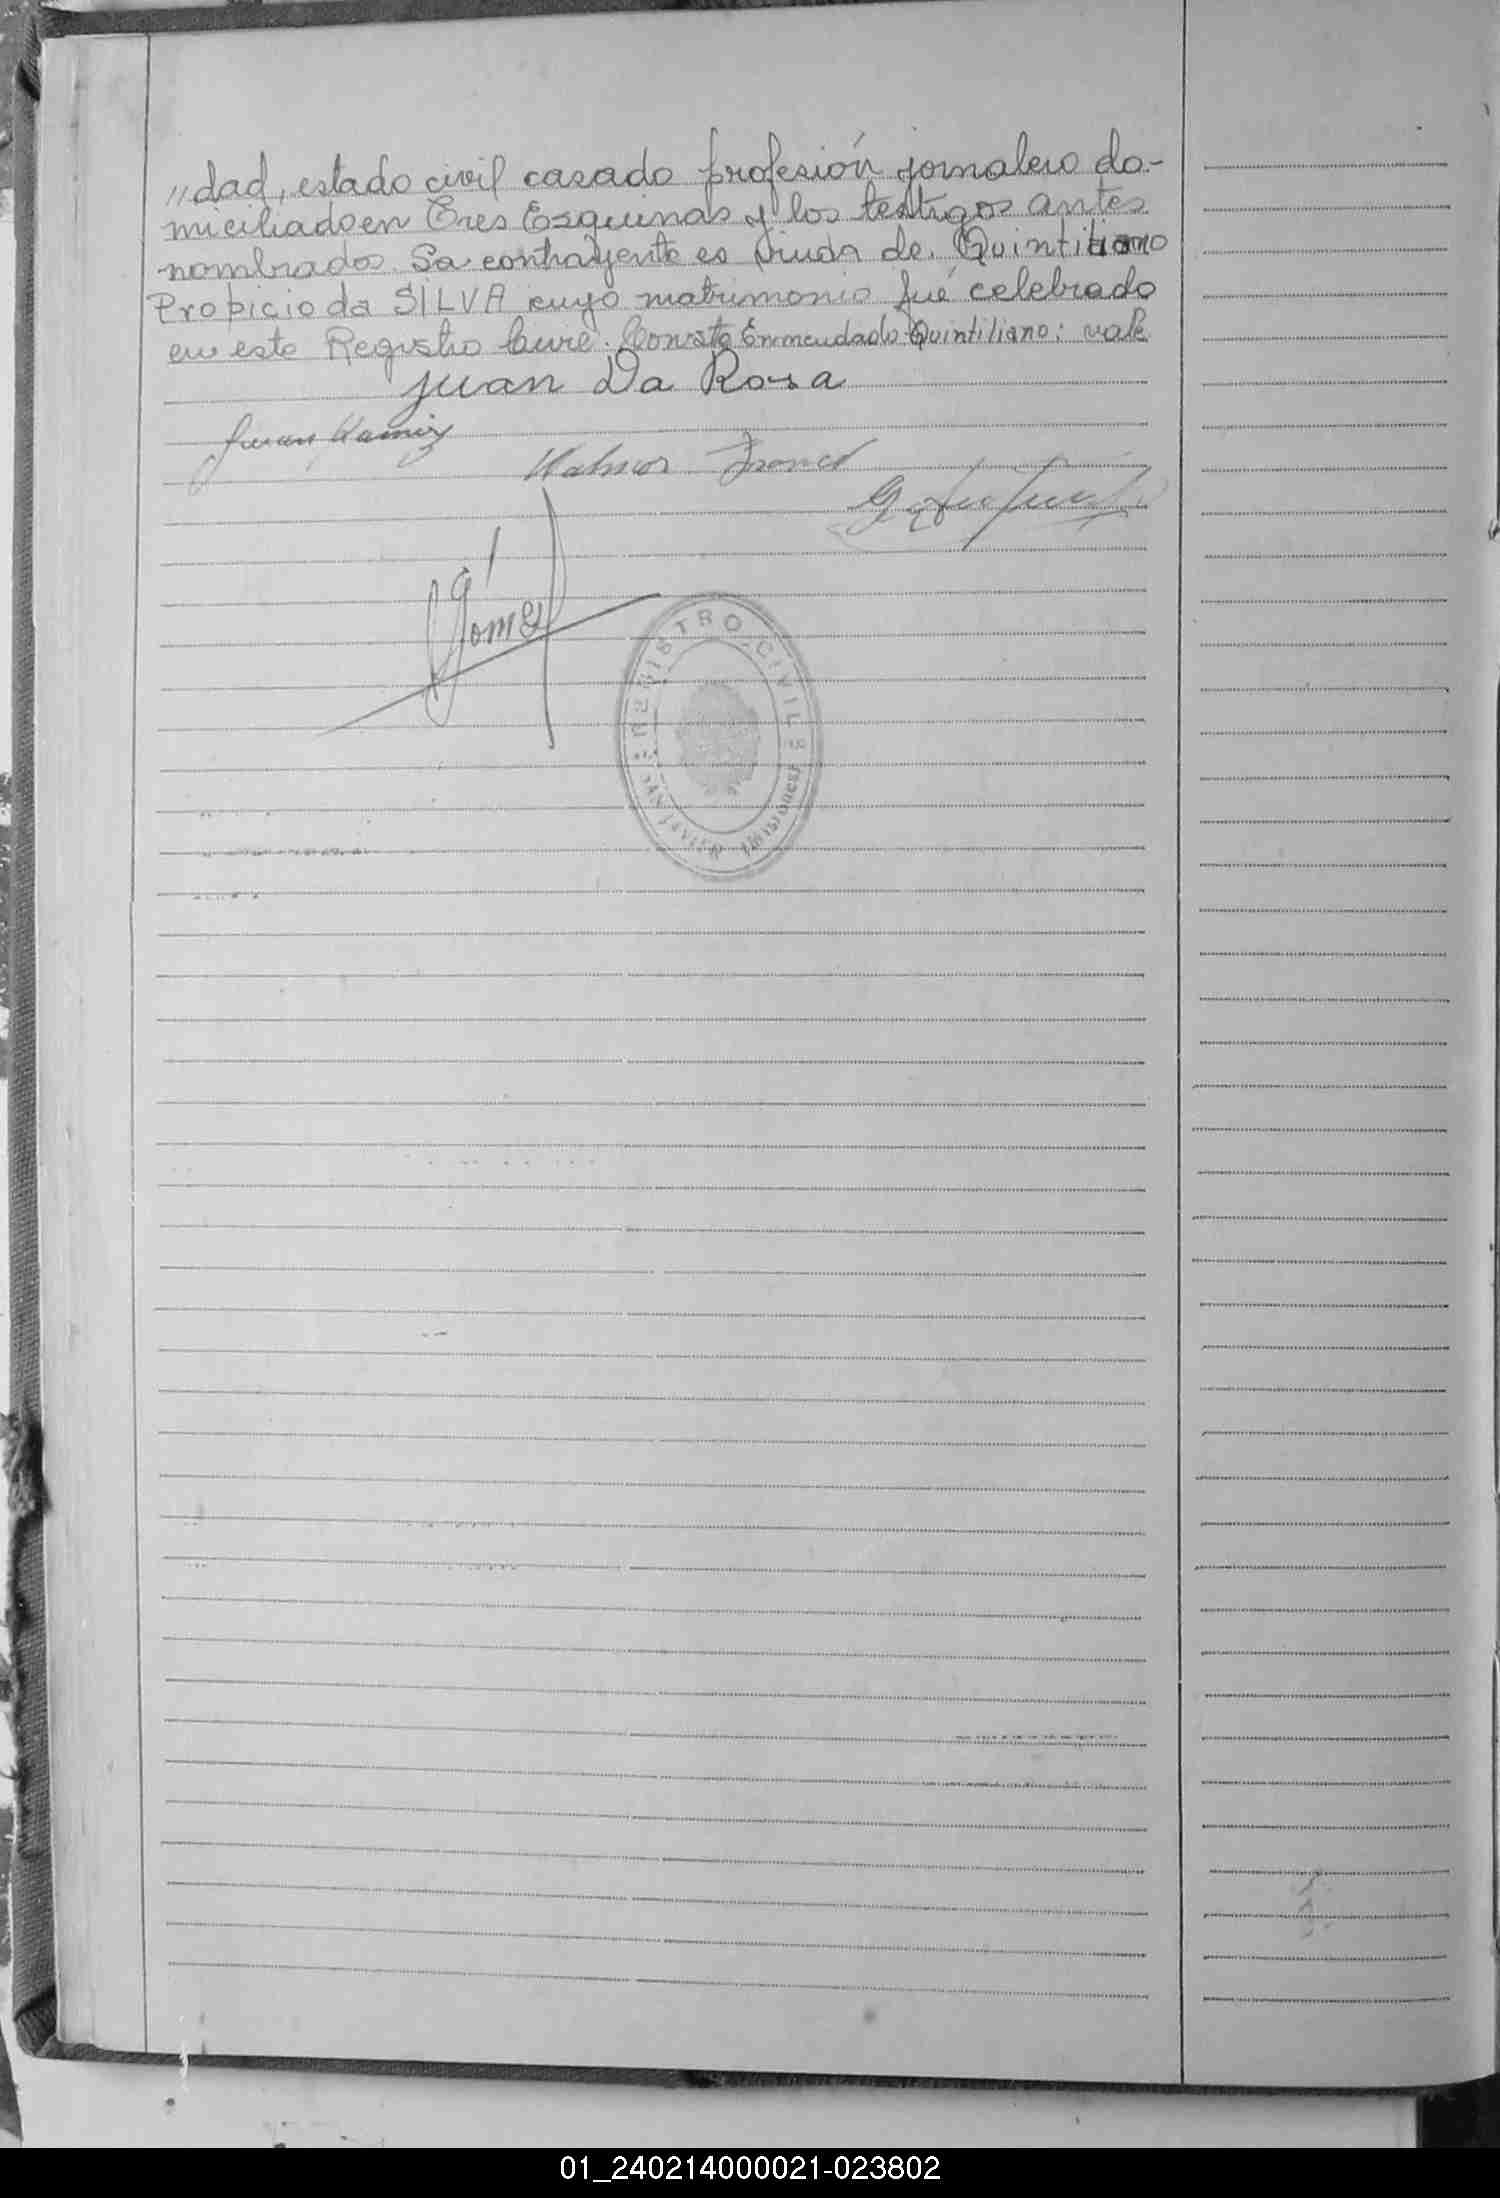 "dad, estado civil casado profesión jornalero do-
miciliado en Tres Esquinas y los testigos antes
nombrados. La contrayente es viuda de Quintiliano
Propicio da SILVA cuyo matrimonio fué celebrado
en este Registro Civil. Consta Enmendado Quintiliano: vale
Juan Da Rosa
Juan Ramirez
Gómez
REGISTRO CIVIL
SAN JAVIER (Misiones)
01_240214000021-023802